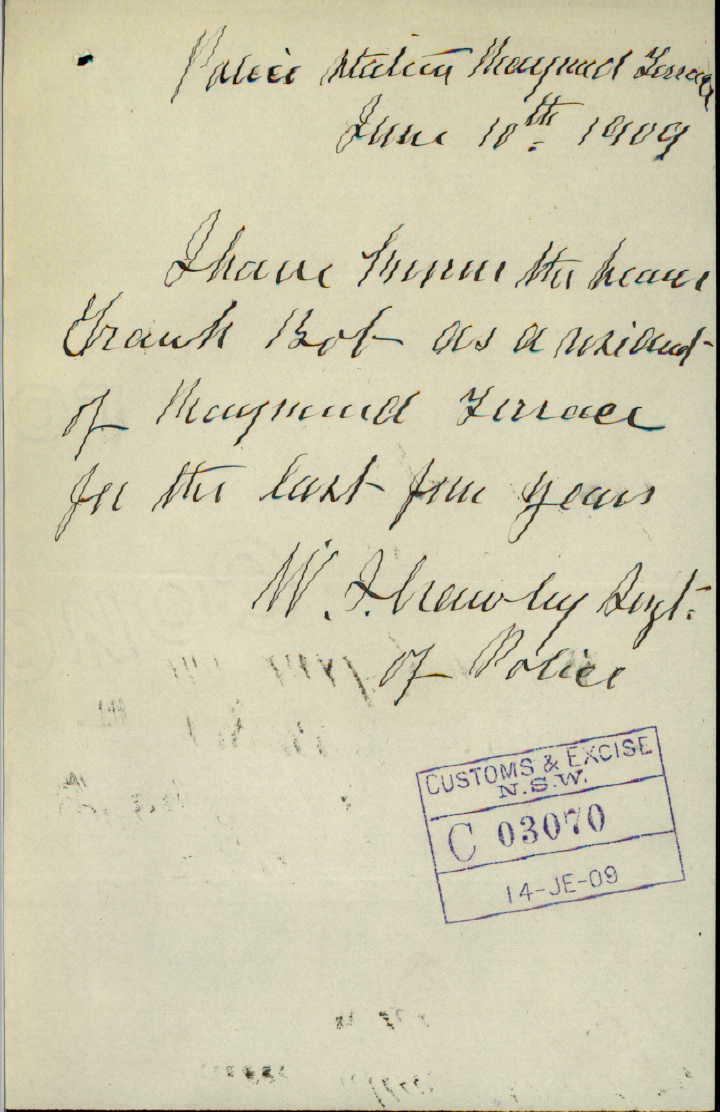 Police Station Raymond Terrace
June 10th. 1909
I have known the bearer
Frank Bot as a resident
of Raymond Terrace
for the last four years
W. J. Crawley Sergt.
of Police
CUSTOMS & EXCISE
N.S.W.
C 03070
14-JE-09